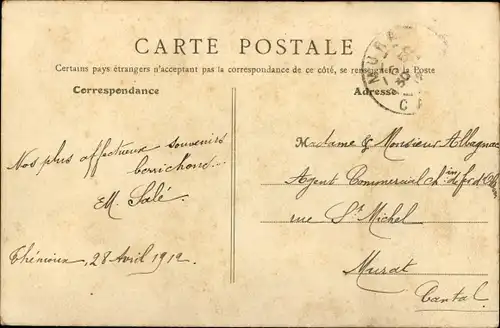 CARTE POSTALE
Certains pays étrangers n'acceptant pas la correspondance de ce côté, se renseigner à la Poste
Correspondance
Adresse
Nos plus affectueux souvenirs
berrichons.
M. Salé.
Thénioux, 28 Avril 1912
Madame & Monsieur Albagnac
Agent Commercial ch.in de fer d'
rue St Michel
Murat
Cantal
MURA